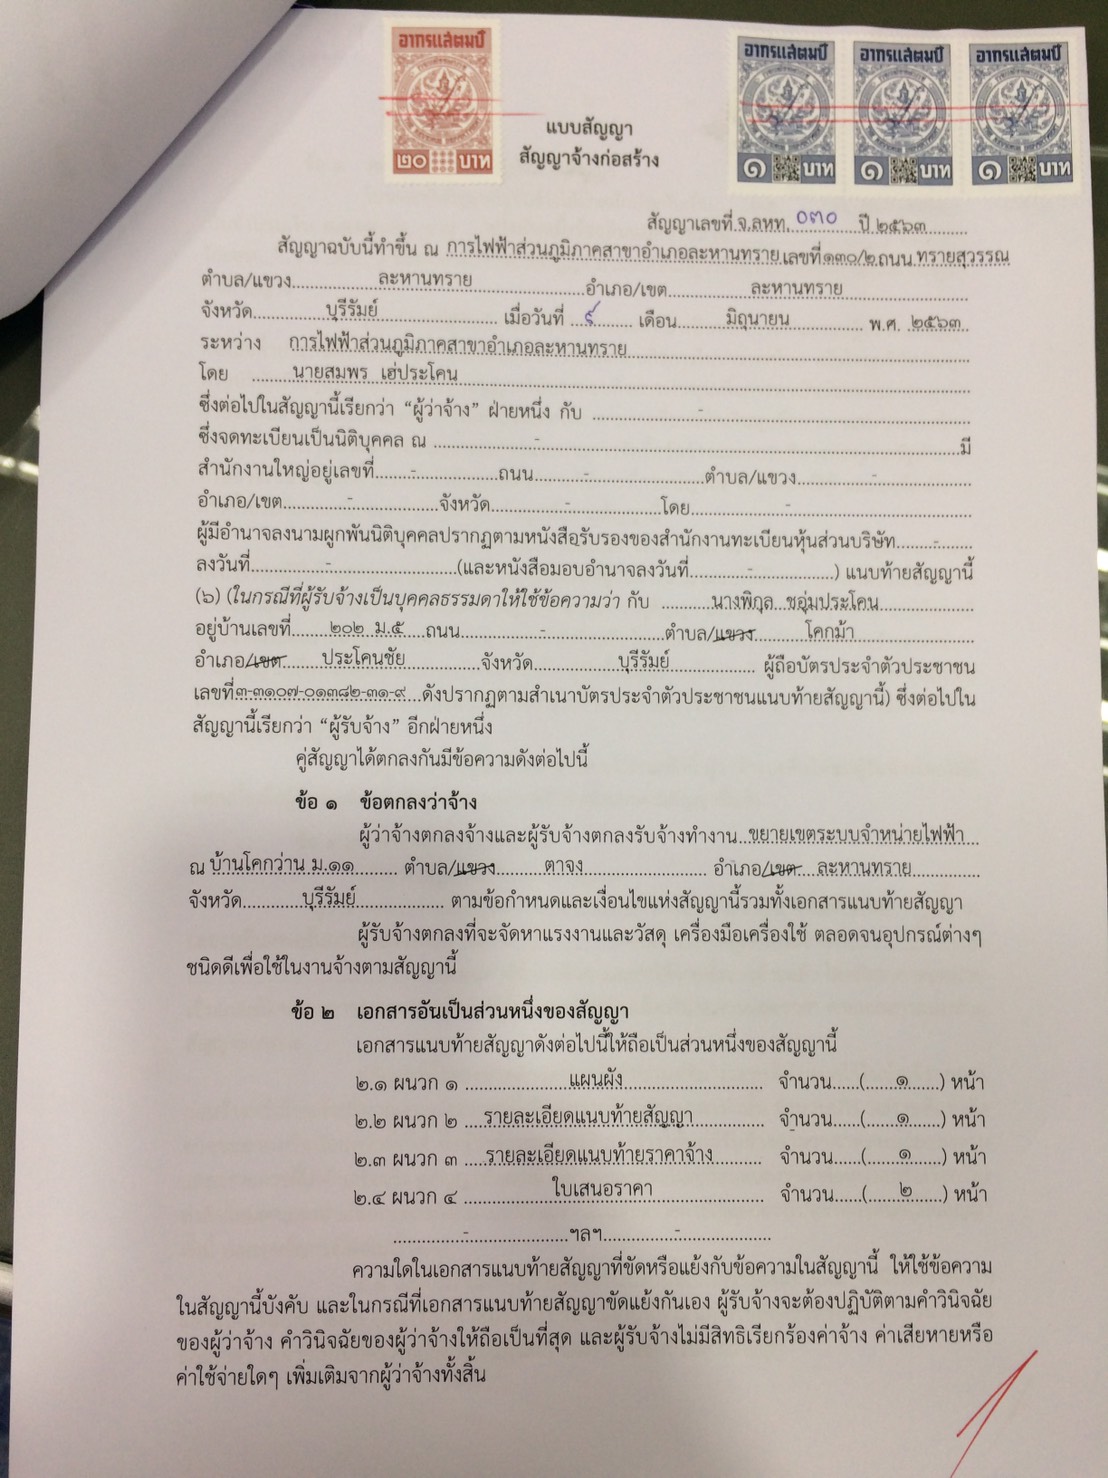 อากรแสตมป์ ๒๐ บาท
อากรแสตมป์ ๑ บาท
อากรแสตมป์ ๑ บาท
อากรแสตมป์ ๑ บาท
แบบสัญญา
สัญญาจ้างก่อสร้าง
สัญญาเลขที่ จ.ลหท. ๐๓๐ ปี ๒๕๖๓
สัญญาฉบับนี้ทำขึ้น ณ การไฟฟ้าส่วนภูมิภาคสาขาอำเภอละหานทราย เลขที่ ๑๓๐/๒ ถนน ทรายสุวรรณ
ตำบล/แขวง ละหานทราย อำเภอ/เขต ละหานทราย
จังหวัด บุรีรัมย์ เมื่อวันที่ ๙ เดือน มิถุนายน พ.ศ. ๒๕๖๓
ระหว่าง การไฟฟ้าส่วนภูมิภาคสาขาอำเภอละหานทราย
โดย นายสมพร เฮ่ประโคน
ซึ่งต่อไปในสัญญานี้เรียกว่า “ผู้ว่าจ้าง” ฝ่ายหนึ่ง กับ -
ซึ่งจดทะเบียนเป็นนิติบุคคล ณ - มี
สำนักงานใหญ่อยู่เลขที่ - ถนน - ตำบล/แขวง -
อำเภอ/เขต - จังหวัด - โดย -
ผู้มีอำนาจลงนามผูกพันนิติบุคคลปรากฏตามหนังสือรับรองของสำนักงานทะเบียนหุ้นส่วนบริษัท -
ลงวันที่ - (และหนังสือมอบอำนาจลงวันที่ - ) แนบท้ายสัญญานี้
(๖) (ในกรณีที่ผู้รับจ้างเป็นบุคคลธรรมดาให้ใช้ข้อความว่า กับ นางพิกุล ชอุ่มประโคน
อยู่บ้านเลขที่ ๒๐๒ ม.๕ ถนน - ตำบล/แขวง โคกม้า
อำเภอ/เขต ประโคนชัย จังหวัด บุรีรัมย์ ผู้ถือบัตรประจำตัวประชาชน
เลขที่ ๓-๓๑๐๗-๐๑๓๘๒-๓๑-๙ ดังปรากฏตามสำเนาบัตรประจำตัวประชาชนแนบท้ายสัญญานี้) ซึ่งต่อไปใน
สัญญานี้เรียกว่า “ผู้รับจ้าง” อีกฝ่ายหนึ่ง
คู่สัญญาได้ตกลงกันมีข้อความดังต่อไปนี้
ข้อ ๑ ข้อตกลงว่าจ้าง
ผู้ว่าจ้างตกลงจ้างและผู้รับจ้างตกลงรับจ้างทำงาน ขยายเขตระบบจำหน่ายไฟฟ้า
ณ บ้านโคกว่าน ม.๑๑ ตำบล/แขวง ตาจง อำเภอ/เขต ละหานทราย
จังหวัด บุรีรัมย์ ตามข้อกำหนดและเงื่อนไขแห่งสัญญานี้รวมทั้งเอกสารแนบท้ายสัญญา
ผู้รับจ้างตกลงที่จะจัดหาแรงงานและวัสดุ เครื่องมือเครื่องใช้ ตลอดจนอุปกรณ์ต่างๆ
ชนิดดีเพื่อใช้ในงานจ้างตามสัญญานี้
ข้อ ๒ เอกสารอันเป็นส่วนหนึ่งของสัญญา
เอกสารแนบท้ายสัญญาดังต่อไปนี้ให้ถือเป็นส่วนหนึ่งของสัญญานี้
๒.๑ ผนวก ๑ แผนผัง จำนวน (๑) หน้า
๒.๒ ผนวก ๒ รายละเอียดแนบท้ายสัญญา จำนวน (๑) หน้า
๒.๓ ผนวก ๓ รายละเอียดแนบท้ายราคาจ้าง จำนวน (๑) หน้า
๒.๔ ผนวก ๔ ใบเสนอราคา จำนวน (๒) หน้า
- ฯลฯ -
ความใดในเอกสารแนบท้ายสัญญาที่ขัดหรือแย้งกับข้อความในสัญญานี้ ให้ใช้ข้อความ
ในสัญญานี้บังคับ และในกรณีที่เอกสารแนบท้ายสัญญาขัดแย้งกันเอง ผู้รับจ้างจะต้องปฏิบัติตามคำวินิจฉัย
ของผู้ว่าจ้าง คำวินิจฉัยของผู้ว่าจ้างให้ถือเป็นที่สุด และผู้รับจ้างไม่มีสิทธิเรียกร้องค่าจ้าง ค่าเสียหายหรือ
ค่าใช้จ่ายใดๆ เพิ่มเติมจากผู้ว่าจ้างทั้งสิ้น